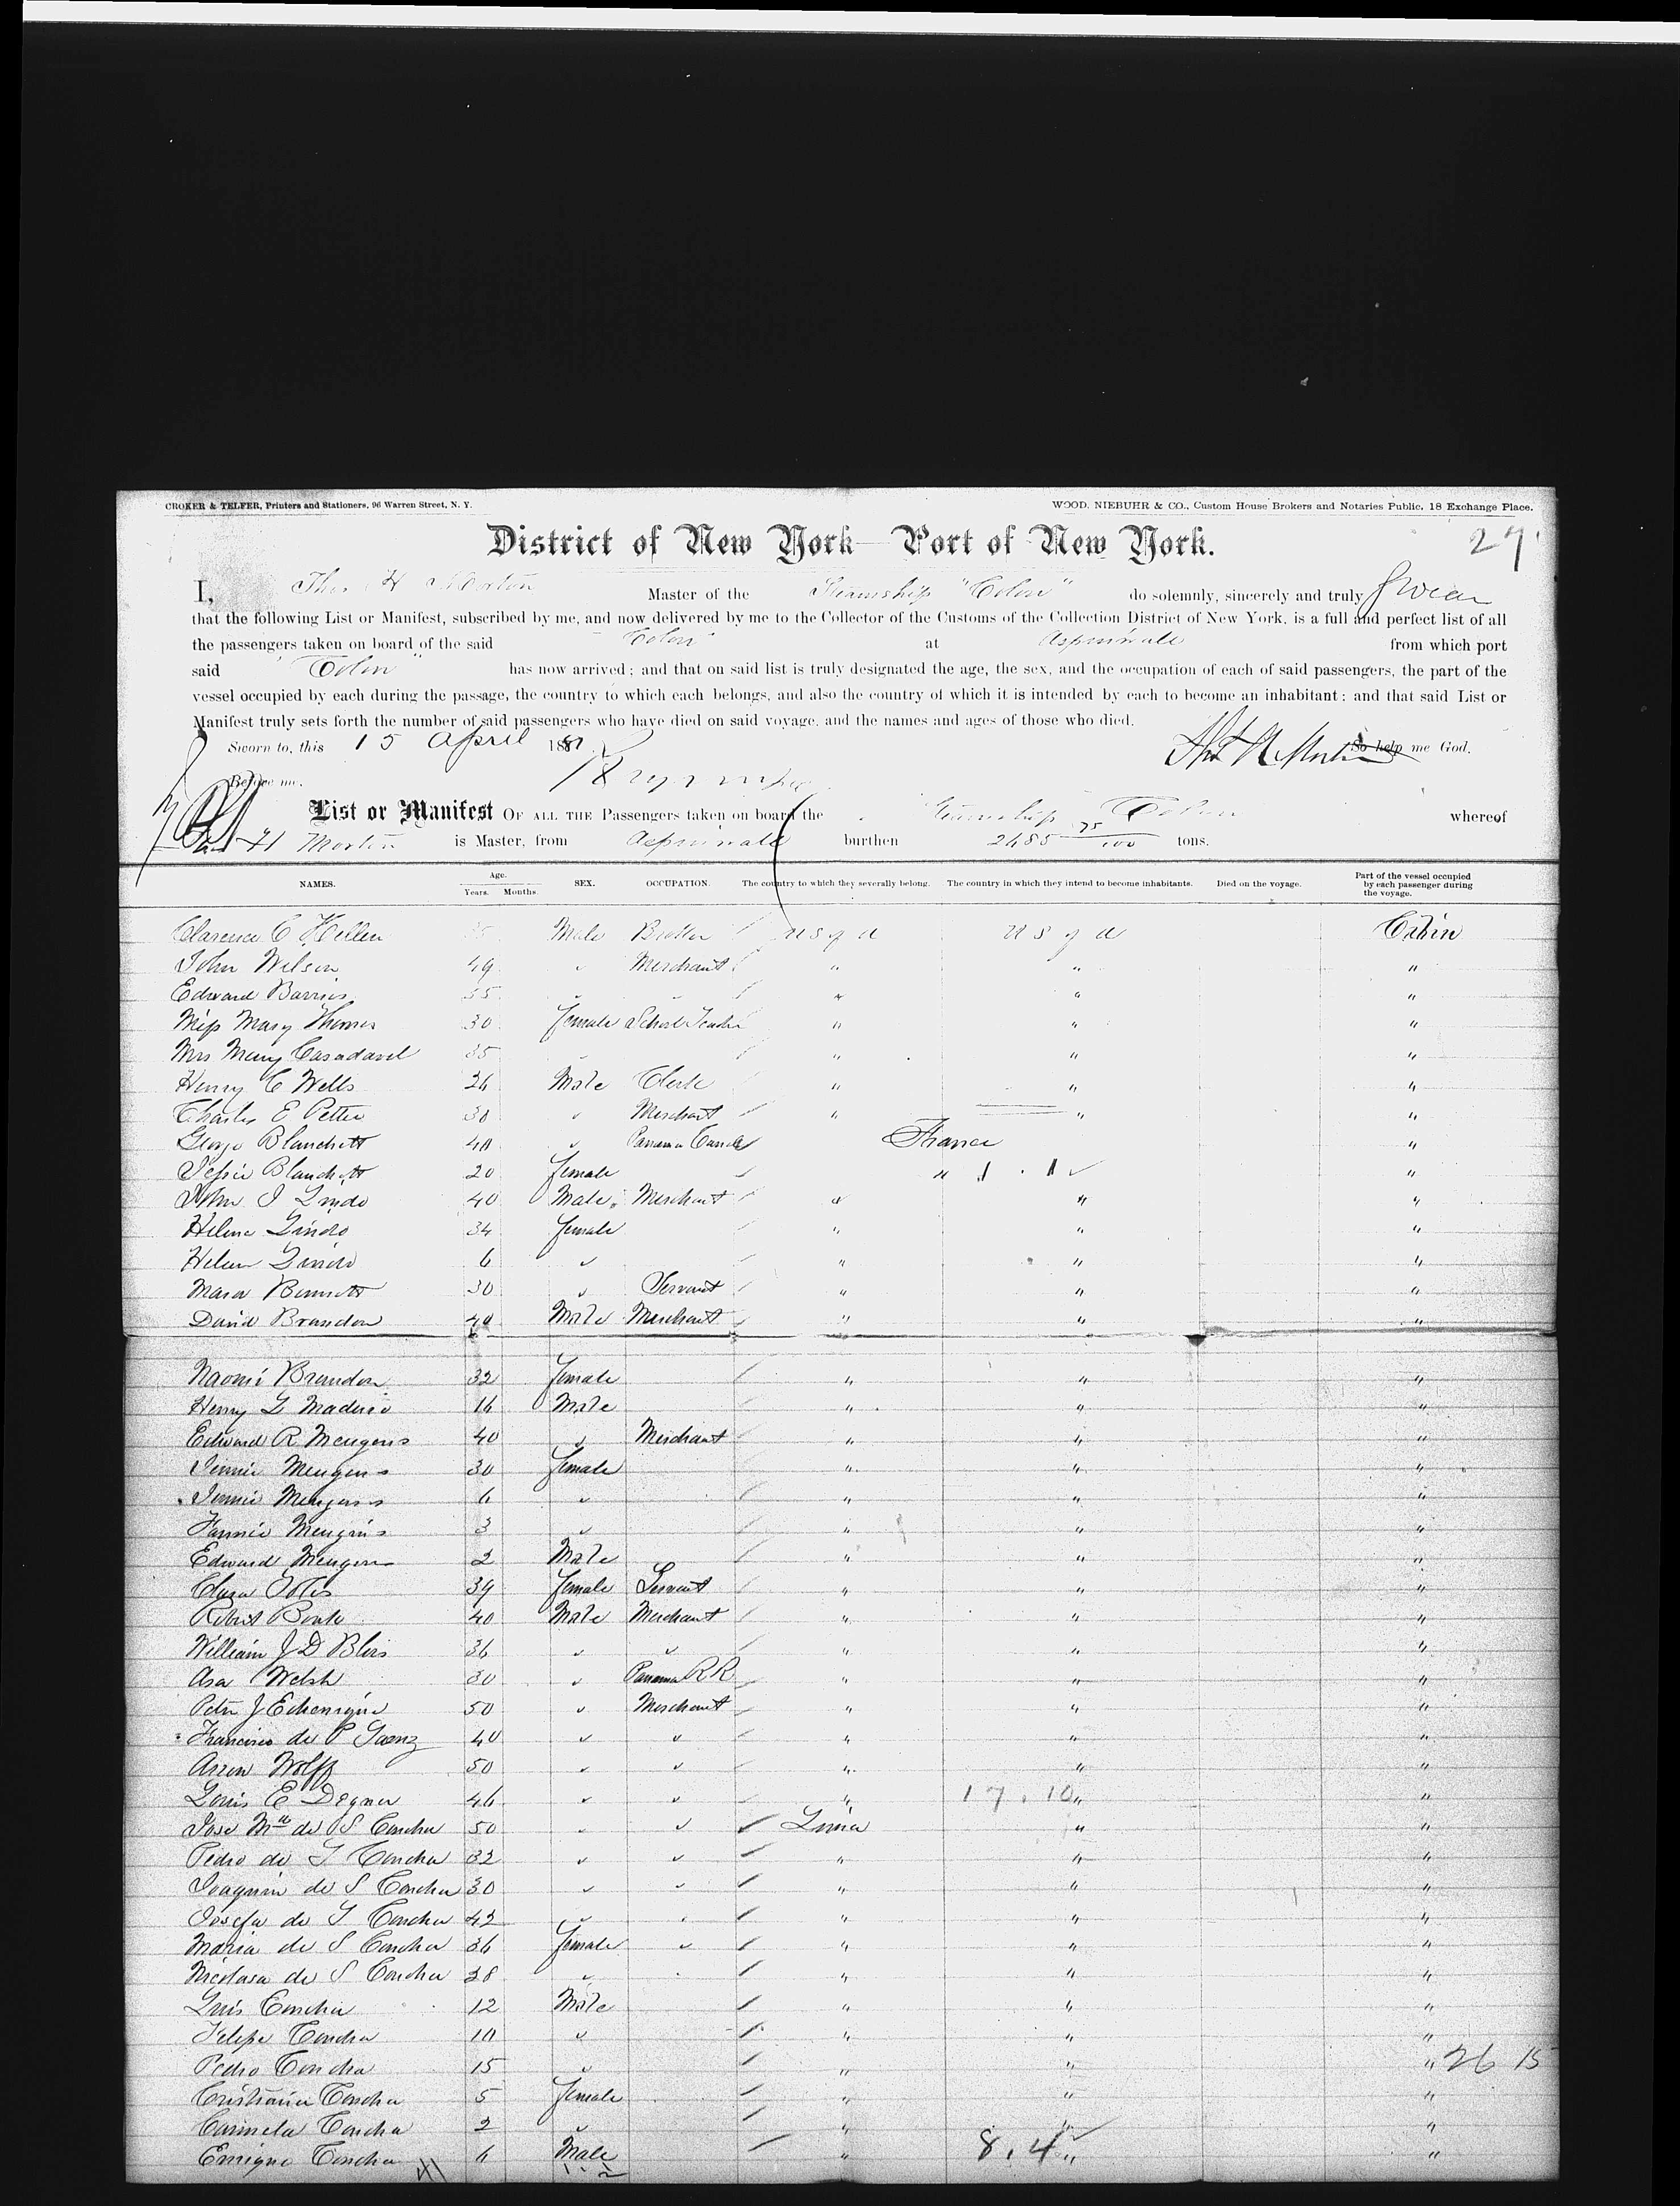 CROKER & TELFER, Printers and Stationers, 96 Warren Street, N. Y. WOOD, NIEBUHR & CO., Custom House Brokers and Notaries Public, 18 Exchange Place.
District of New York Port of New York. 27
I, Thos H Morton Master of the Steamship "Colon" do solemnly, sincerely and truly Swear
that the following List or Manifest, subscribed by me, and now delivered by me to the Collector of the Customs of the Collection District of New York, is a full and perfect list of all
the passengers taken on board of the said "Colon" at Aspinwall from which port
said "Colon" has now arrived; and that on said list is truly designated the age, the sex, and the occupation of each of said passengers, the part of the
vessel occupied by each during the passage, the country to which each belongs, and also the country of which it is intended by each to become an inhabitant; and that said List or
Manifest truly sets forth the number of said passengers who have died on said voyage, and the names and ages of those who died.
Sworn to, this 15 April 1881 So help me God.
Before me.
List or Manifest OF ALL THE Passengers taken on board the Steamship Colon whereof
Thos H Morton is Master, from Aspinwall burthen 2485 75/100 tons.
NAMES. Age. Years. Months. SEX. OCCUPATION. The country to which they severally belong. The country in which they intend to become inhabitants. Died on the voyage. Part of the vessel occupied by each passenger during the voyage.
Clarence C Hellen 35 Male U S of A U S of A Cabin
John Wilson 49 " Merchant " " "
Edward Barrios 35 " " " " "
Miss Mary Thomas 30 Female School Teacher " " "
Mrs Mary 35 " " " "
Henry C Wells 26 Male Clerk " " "
Charles E Pettee 30 " Merchant " " "
George Blanchett 40 " Panama Canal France "
Jessie Blanchett 20 Female " "
John J Lindo 40 Male Merchant " " "
Helena Lindo 34 Female " " "
Helen Lindo 6 " " " "
Maria Bennett 30 " Servant " " "
David Brandon 40 Male Merchant " " "
Naomi Brandon 32 Female " " "
Henry L Maduro 16 Male " " "
Edward R Meugens 40 " Merchant " " "
Jennie Meugens 30 Female " " "
Jennie Meugens 6 " " " "
Fannie Meugens 3 " " " "
Edward Meugens 2 Male " " "
Clara Otis 39 Female Servant " " "
Robert 40 Male Merchant " " "
William J D Blois 36 " " " " "
Asa Welsh 30 " Panama R R " " "
Peter J Echenique 50 " Merchant " " "
Francisco de P Saenz 40 " " " " "
Aaron Wolff 50 " " " " "
Louis E Degner 46 " " " 17.10 " "
Jose Ma de S Concha 50 " " Lima " "
Pedro de S Concha 32 " " " " "
Joaquin de S Concha 30 " " " " "
Josefa de S Concha 42 " " " " "
Maria de S Concha 36 Female " " " "
Nicolasa de S Concha 28 " " " "
Luis Concha 12 Male " " "
Felipe Concha 10 " " " "
Pedro Concha 15 " " " " 26 15
Cristiana Concha 5 Female " " "
Carmela Concha 2 " " " "
Enrique Concha 6 Male " 8.4 " "